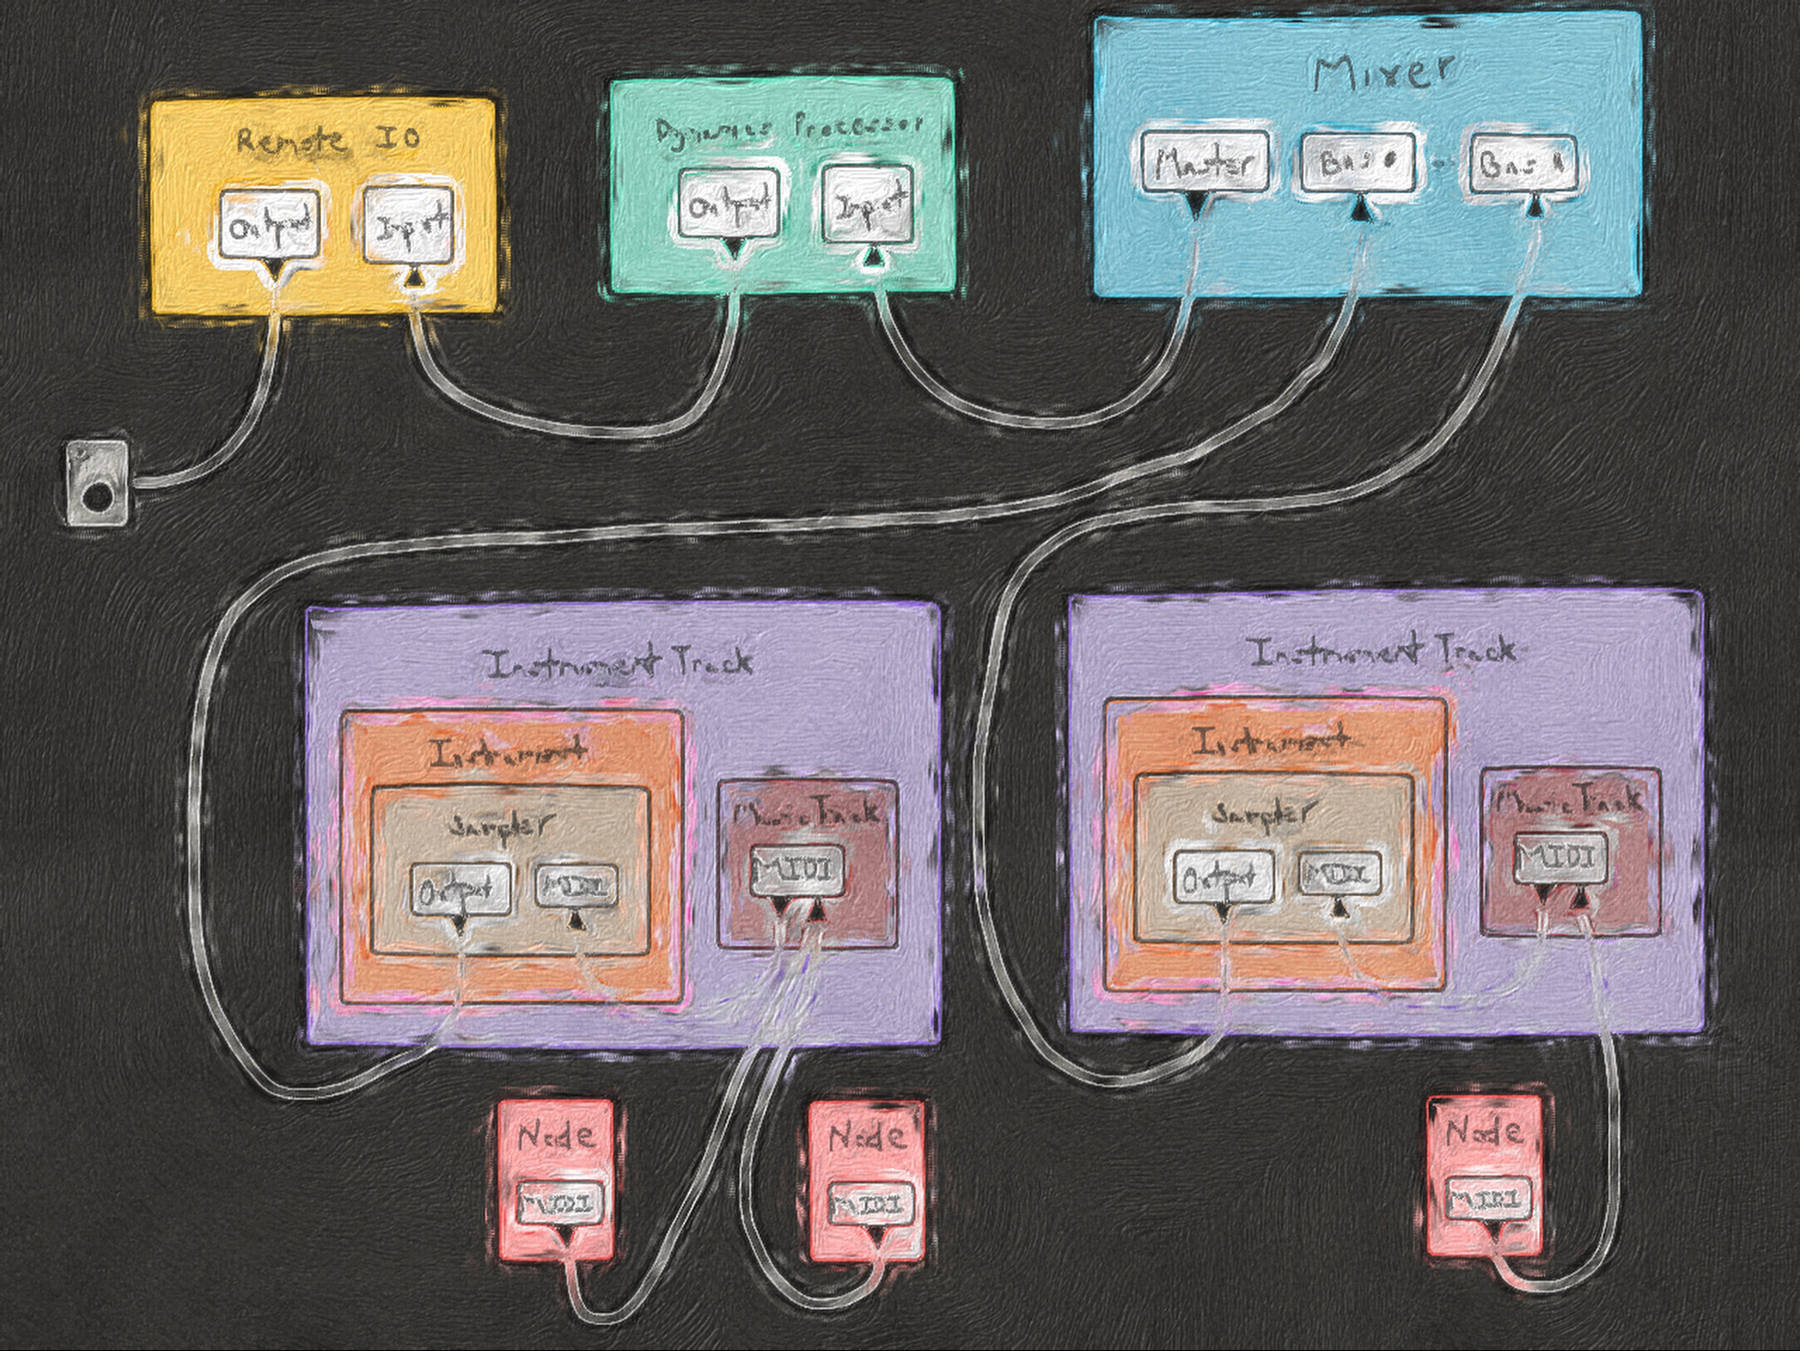 Mixer
Remote IO
Dynamics Processor
Output
Input
Output
Input
Master
Bus 0
Bus
Instrument Track
Instrument
Sampler
Output
MIDI
Music Track
MIDI
Instrument Track
Instrument
Sampler
Output
MIDI
Music Track
MIDI
Node
MIDI
Node
MIDI
Node
MIDI